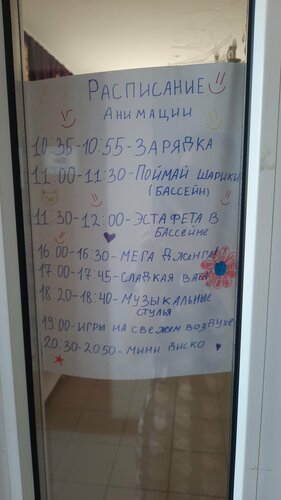 Расписание
Анимации
10:35-10:55-Зарядка
11:00-11:30-Поймай шарики
(бассейн)
11:30-12:00-Эстафета в
бассейне
16:00-16:30-Мега Дженга
17:00-17:45-Сладкая вата
18:20-18:40-Музыкальные
стулья
19:00-Игры на свежем воздухе
20:30-20:50-Мини диско